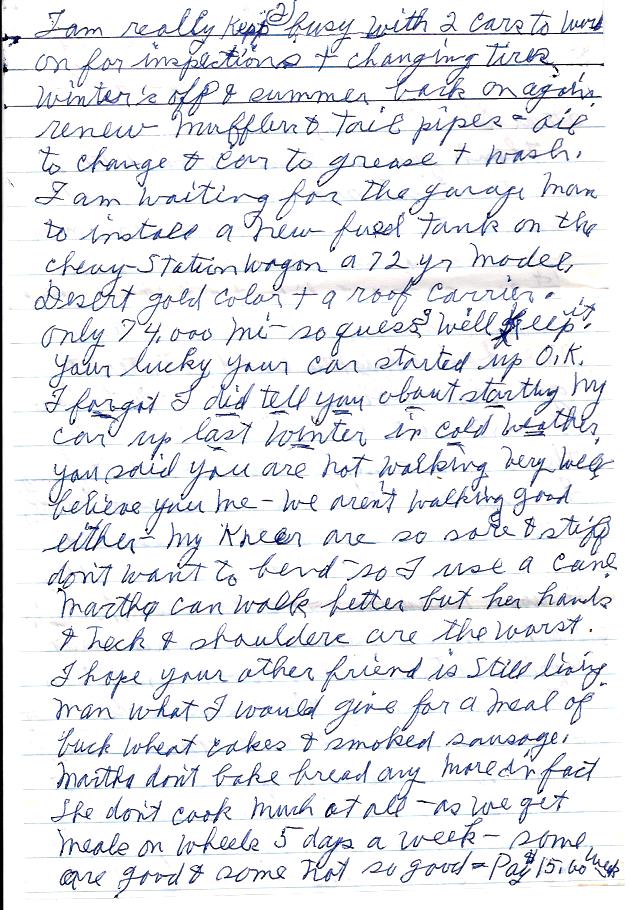 (2)
I am really kept busy with 2 cars to work
on for inspections + changing tires
Winter's off & summer back on again.
renew mufflers & tail pipes - oil
to change & car to grease + wash.
I am waiting for the garage man
to install a new fuel tank on the
chevy-Station Wagon a 72 yr model,
Desert gold color + a roof carrier.
only 74.000 mi- so guess I will keep it.
your lucky your car started up O.K.
I forgot I did tell you about starting my
car up last winter in cold weather,
you said you are not walking very well
believe you me - we aren't walking good
either - my knees are so sore & stiff
don't want to bend - so I use a cane
Martha can walk better but her hands
& neck & shoulders are the worst.
I hope your other friend is still living
man what I would give for a meal of
buck wheat cakes & smoked sausage.
Martha don't bake bread any more in fact
She don't cook much at all - as we get
meals on wheels 5 days a week - some
are good & some not so good = Pay $15.00 week